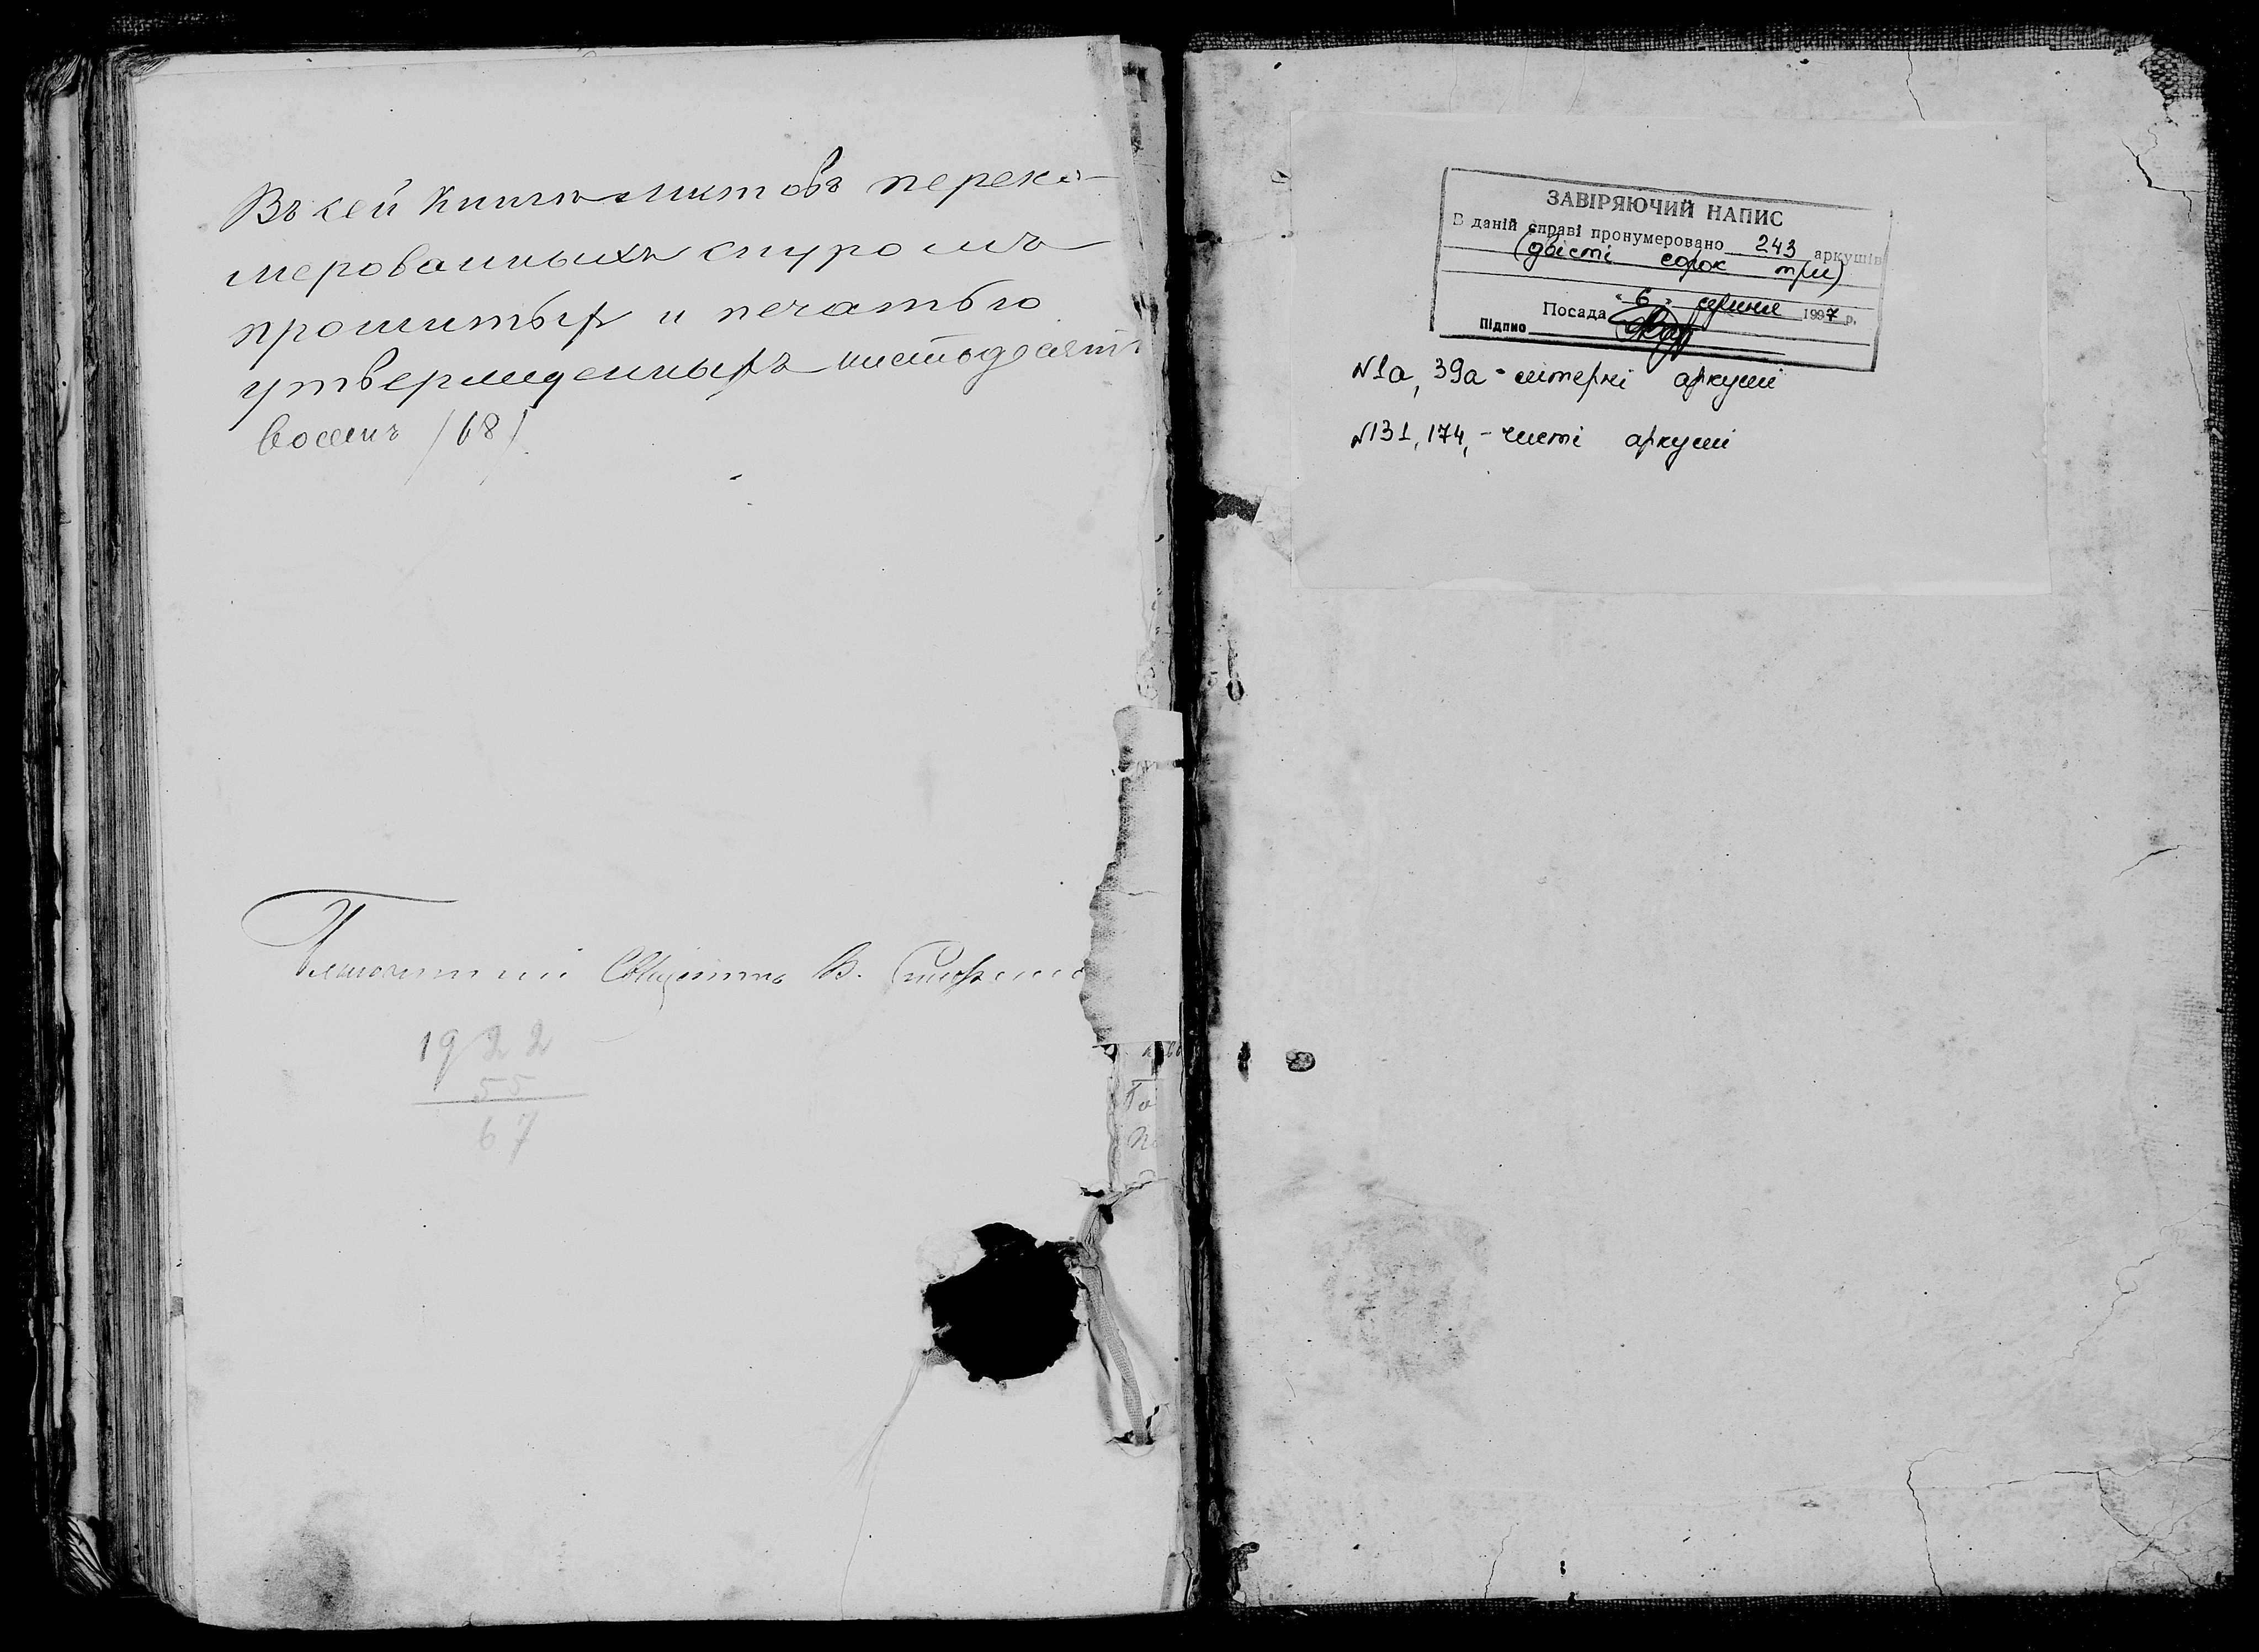 Въ сей книгѣ листовъ перену-
мерованныхъ шнуромъ
прошитыхъ и печатью
утвержденныхъ шестьдесятъ
восемь /68/.
В.
1922
55
67
ЗАВІРЯЮЧИЙ НАПИС
В даній справі пронумеровано 243 аркушів
(двісті сорок три)
"6" серпня 1997 р.
Посада
Підпис
№1а, 39а - літерні аркуші
№131, 174, - чисті аркуші